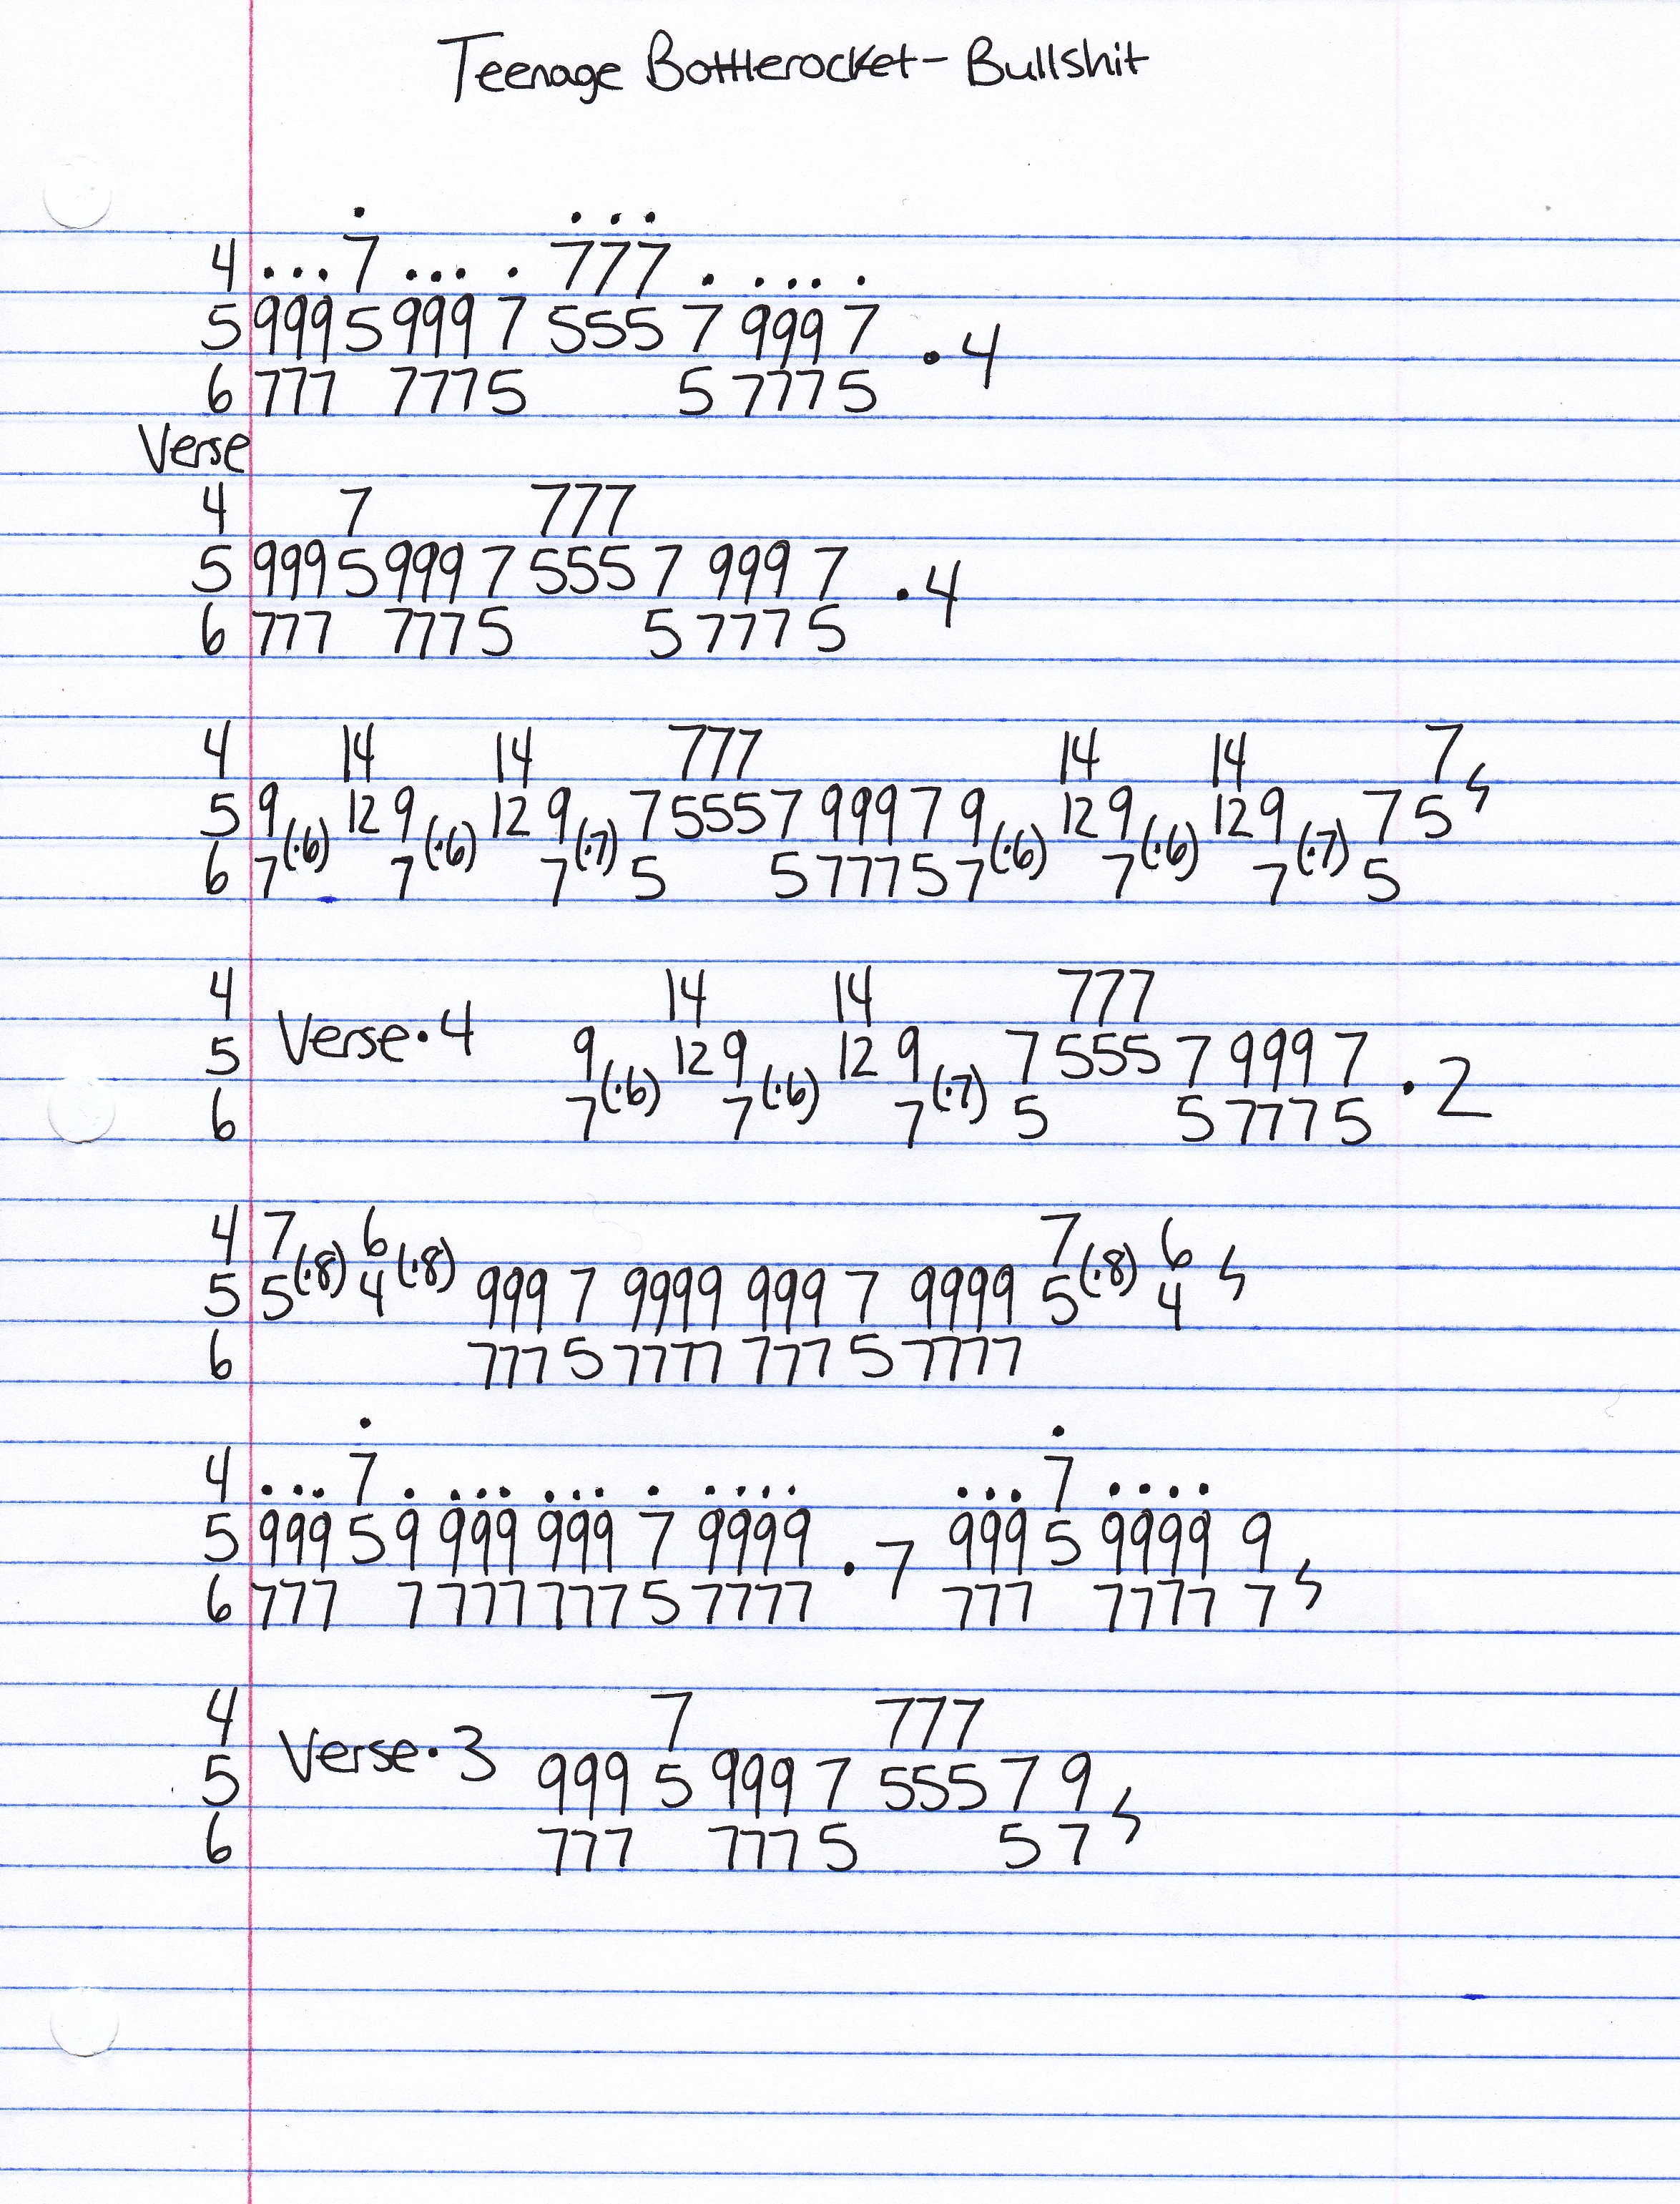 Teenage Bottlerocket - Bullshit
4 ... 7 ... . 777 . .... .
5 999 5 999 7 555 7 999 7 · 4
6 777 777 5 5 777 5
Verse
4 7 777
5 999 5 999 7 555 7 999 7 · 4
6 777 777 5 5 777 5
4 14 14 777 14 14 7
5 9 (·6) 12 9 (·6) 12 9 (·7) 7 555 7 999 7 9 (·6) 12 9 (·6) 12 9 (·7) 7 5
6 7 7 7 5 5 777 5 7 7 7 5
4 14 14 777
5 Verse · 4 9 (·6) 12 9 (·6) 12 9 (·7) 7 555 7 999 7 · 2
6 7 7 7 5 5 777 5
4 7 6 7 6
5 5 (·8) 4 (·8) 999 7 9999 999 7 9999 5 (·8) 4
6 777 5 7777 777 5 7777
4 ... 7 . ... ... . .... ... 7 ....
5 999 5 9 999 999 7 9999 · 7 999 5 9999 9
6 777 7 777 777 5 7777 777 7777 7
4 7 777
5 Verse · 3 999 5 999 7 555 7 9
6 777 777 5 5 7